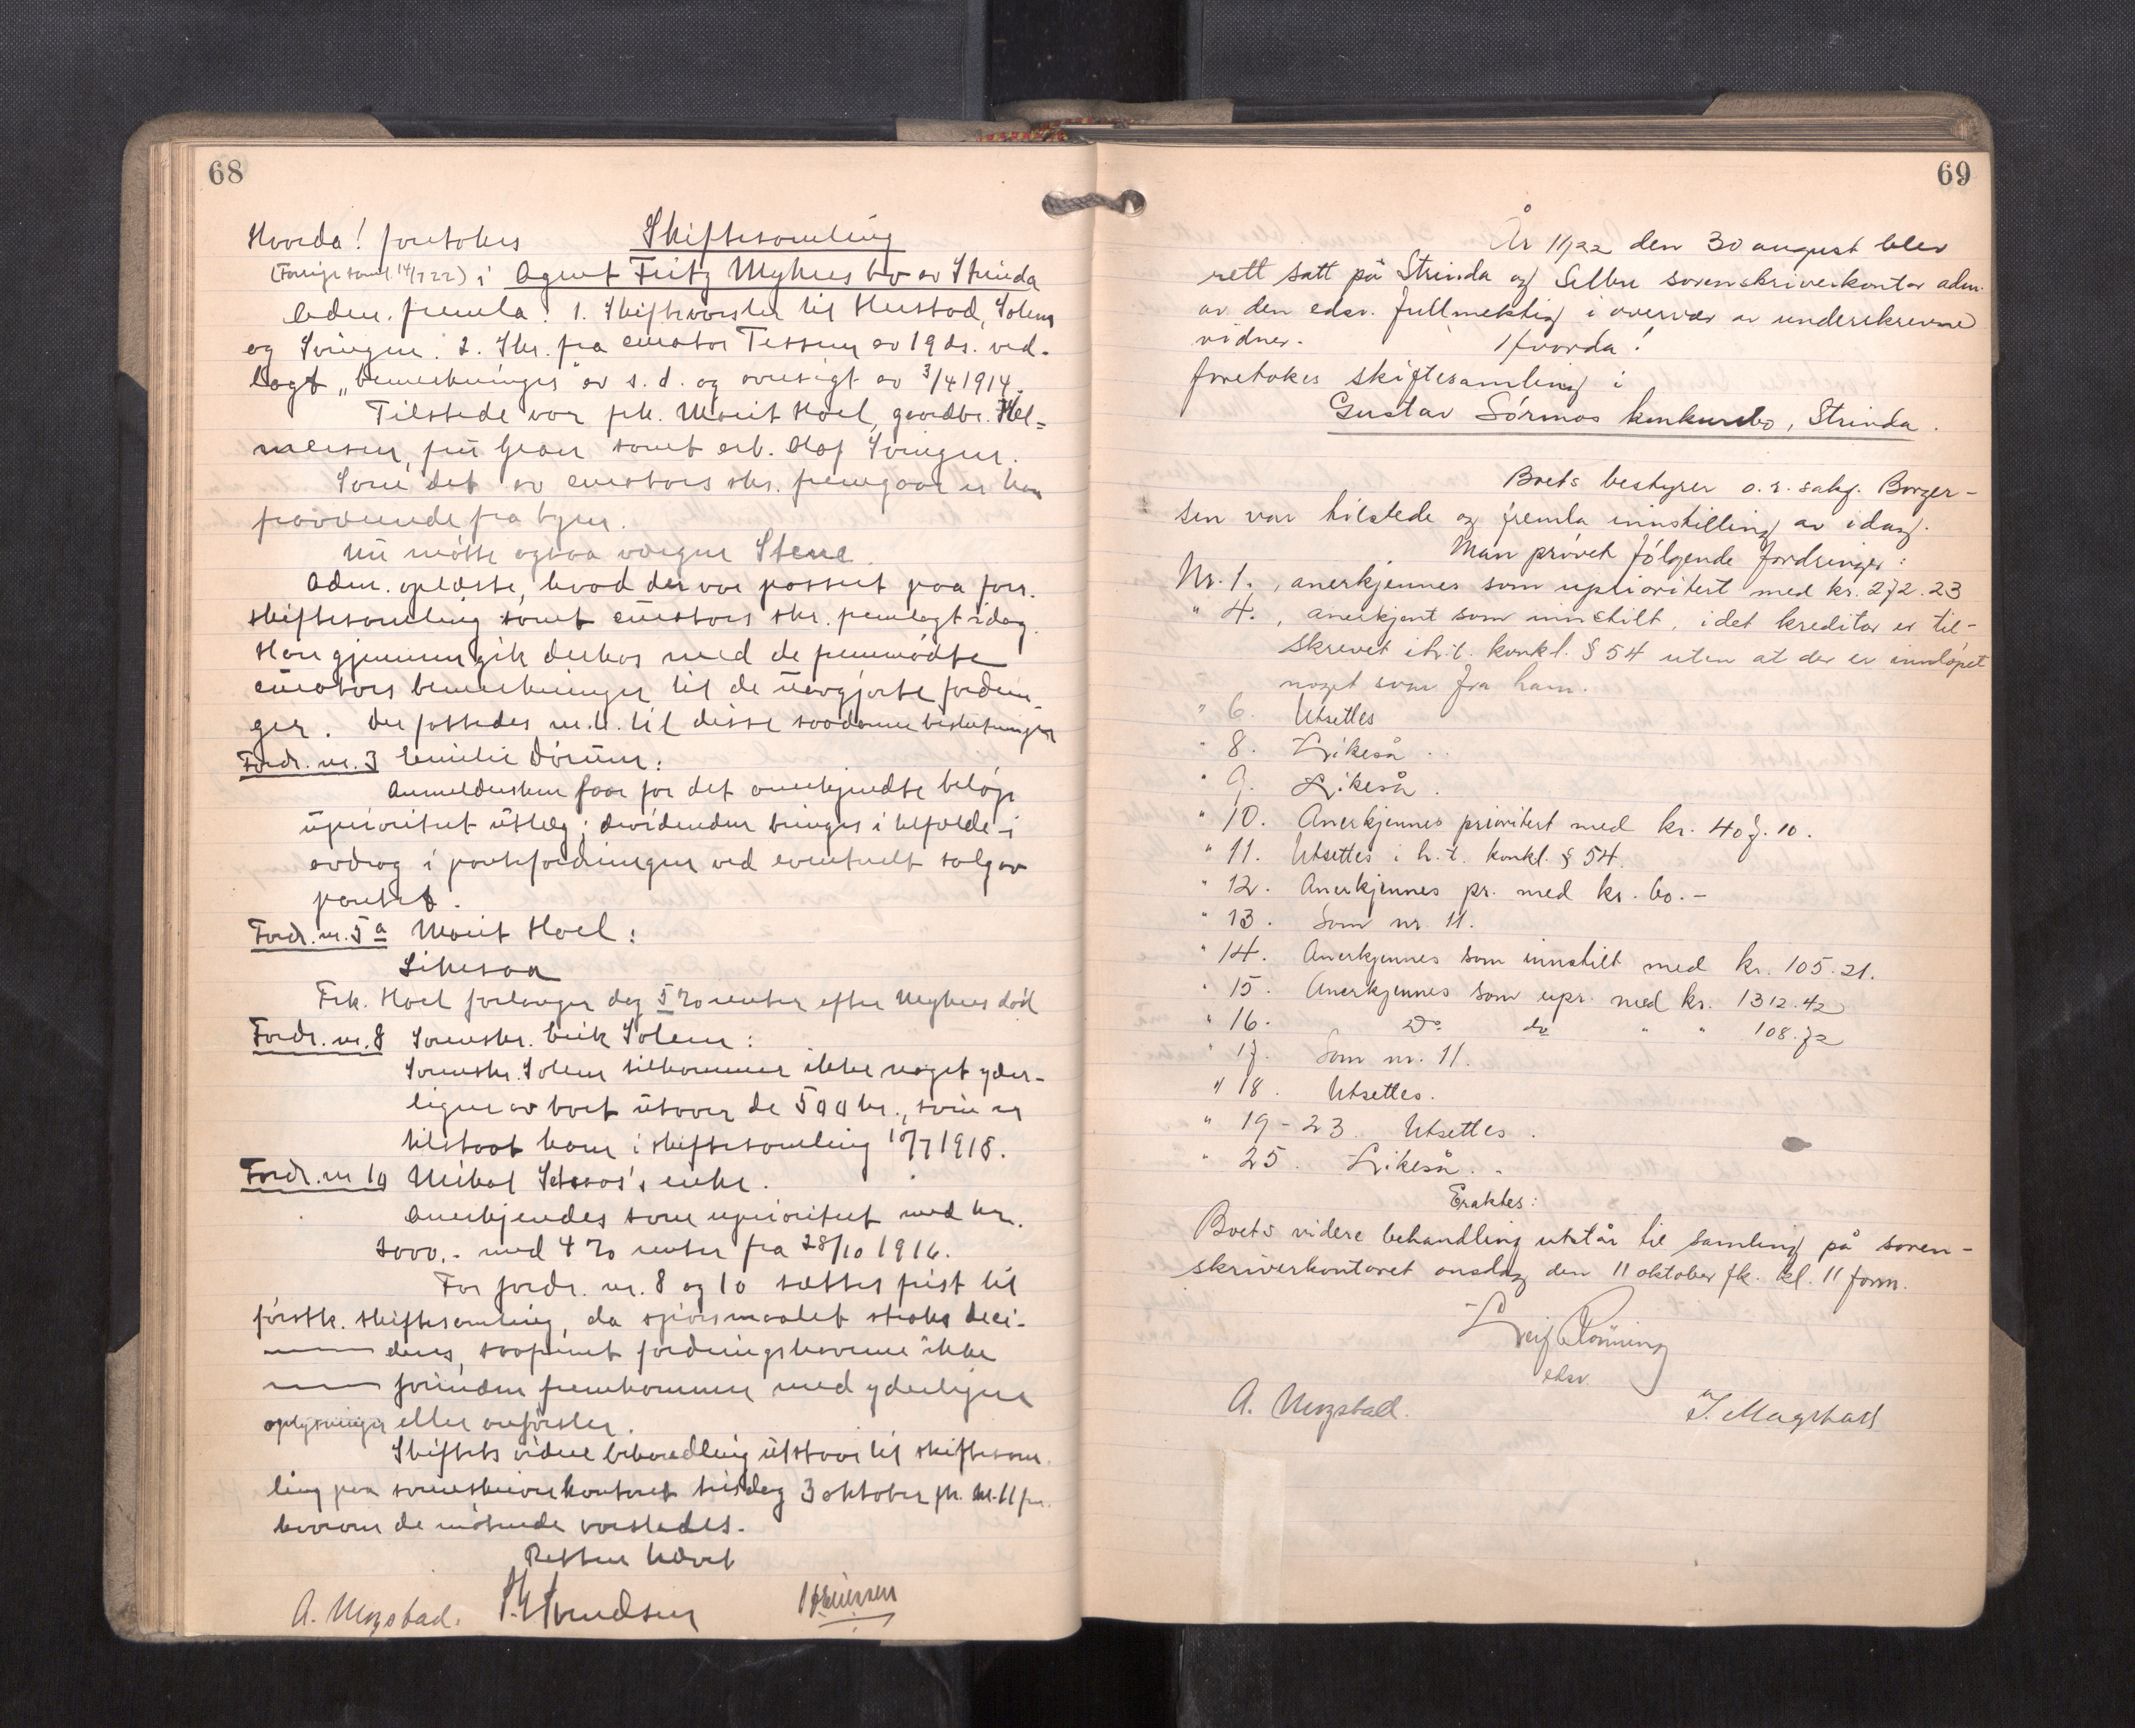 68
Hvorda! foretokes Skiftesamling
(Forrige saml. 14/7 22) i Agent Fritz Myhres bo av Strinda
Adm. fremla: 1. Skiftevarsler til Hustad, Solem
og Svingen. 2. Skr. fra curator Tessem av 19 ds. ved-
lagt „bemerkninger" av s. d. og oversigt av 3/4 1914.
Tilstede var frk. Marit Hoel, gaardbr. Hel-
mersen, fru Graer samt arb. Olaf Svingen.
Som det av curators skr. fremgaar er han
fraværende fra byen.
Nu møtte ogsaa værgen Stene.
Adm. oplæste, hvad der var passert paa forr.
skiftesamling samt curators skr. fremlagt idag.
Han gjennemgik derhos med de fremmødte
curators bemerkninger til de uavgjorte fordrin-
ger. Der fattedes m. h. t. til disse saadanne beslutninger
Fordr. nr. 3 Emilie Dørum:
Anmeldersken faar for det anerkjendte beløp
uprioritert utlæg; dividenden bringes i tilfælde i
avdrag i pantefordringen ved eventuelt salg av
pantet.
Fordr. nr. 5a Marit Hoel:
Likesaa
Frk. Hoel forlanger dog 5 % renter efter Myhres død
Fordr. nr. 8 Sorenskr. Erik Solem:
Sorenskr. Solem tilkommer ikke noget yder-
ligere av boet utover de 500 kr., som er
tilstaat ham i skiftesamling 10/7 1918.
Fordr. nr 10 Mikal Setsaas's enke.
Anerkjendes som uprioritert med kr.
2000.- med 4 % renter fra 28/10 1916.
For fordr. nr. 8 og 10 sættes frist til
førstk. skiftesamling, da spørsmaalet straks deci-
deres, saafremt fordringshaverne ikke
forinden fremkommer med yderligere
oplysninger eller anførsler.
Skiftets videre behandling utstaar til skiftesam-
ling paa sorenskriverkontoret tirsdag 3 oktober fk. kl. 11 fm.
hvorom de møtende varsledes.
Retten hævet
A. Mogstad.
69
År 1922 den 30 august blev
rett satt på Strinda og Selbu sorenskriverkontor adm.
av den edsv. fullmektig i overvær av underskrevne
vidner. Hvorda!
foretokes skiftesamling i
Gustav Sørmos konkursbo, Strinda.
Boets bestyrer o.r. sakf. Borger-
sen var tilstede og fremla innstilling av idag.
Man prøvet følgende fordringer:
Nr. 1., anerkjennes som uprioritert med kr. 272.23
" 4., anerkjent som innstilt, idet kreditor er til-
skrevet i h. t. konkl. § 54 uten at der er innløpet
noget svar fra ham.
" 6. Utsettes
" 8. Likeså.
" 9. Likeså.
" 10. Anerkjennes prioritert med kr. 407.10.
" 11. Utsettes i h. t. konkl. § 54.
" 12. Anerkjennes pr. med kr. 60.-
" 13. Som nr. 11.
" 14. Anerkjennes som innstilt med kr. 105.21.
" 15. Anerkjennes som upr. med kr. 1312.42
" 16. Do do " " 108.72
" 17. Som nr. 11.
" 18. Utsettes.
" 19-23. Utsettes.
" 25. Likeså.
Eraktes:
Boets videre behandling utstår til samling på soren-
skriverkontoret onsdag den 11 oktober fk. kl. 11 form.
Leif Rönning
edsv.
A. Mogstad.
J. Magstad